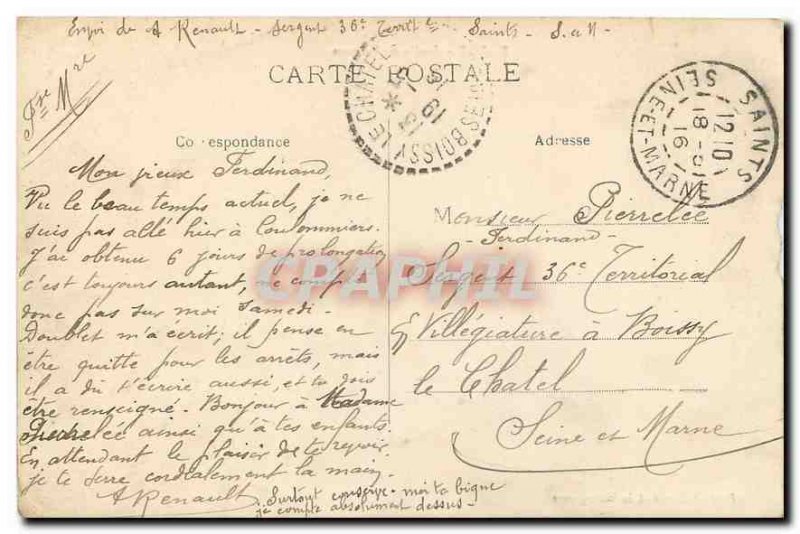 Envoi de A Renault - Sergent 36e Territ l
Saints - S. et M -
Fse Mre
CARTE POSTALE
Correspondance
Adresse
SAINTS
12 10
18 -
16
SEINE-ET-MARNE
BOISSY LE CHATEL
Mon vieux Ferdinand,
Vu le beau temps actuel, je ne
suis pas allé hier à Coulommiers.
J'ai obtenu 6 jours de prolongation
c'est toujours autant, ne compte
donc pas sur moi Samedi.
Doublet m'a ecrit; il pense en
être quitte pour les arrêts, mais
il a dû t'écrire aussi, et tu dois
être renseigné. Bonjour à Madame
Pierrelée ainsi qu'à tes enfants.
En attendant le plaisir de te revoir
je te serre cordialement la main.
A Renault
Surtout conserve-moi ta bique
je compte absolument dessus -
Monsieur Pierrelée
- Ferdinand -
Sergent 36e Territorial
En Villégiature à Boissy
le Chatel
Seine et Marne
CPAPHIL